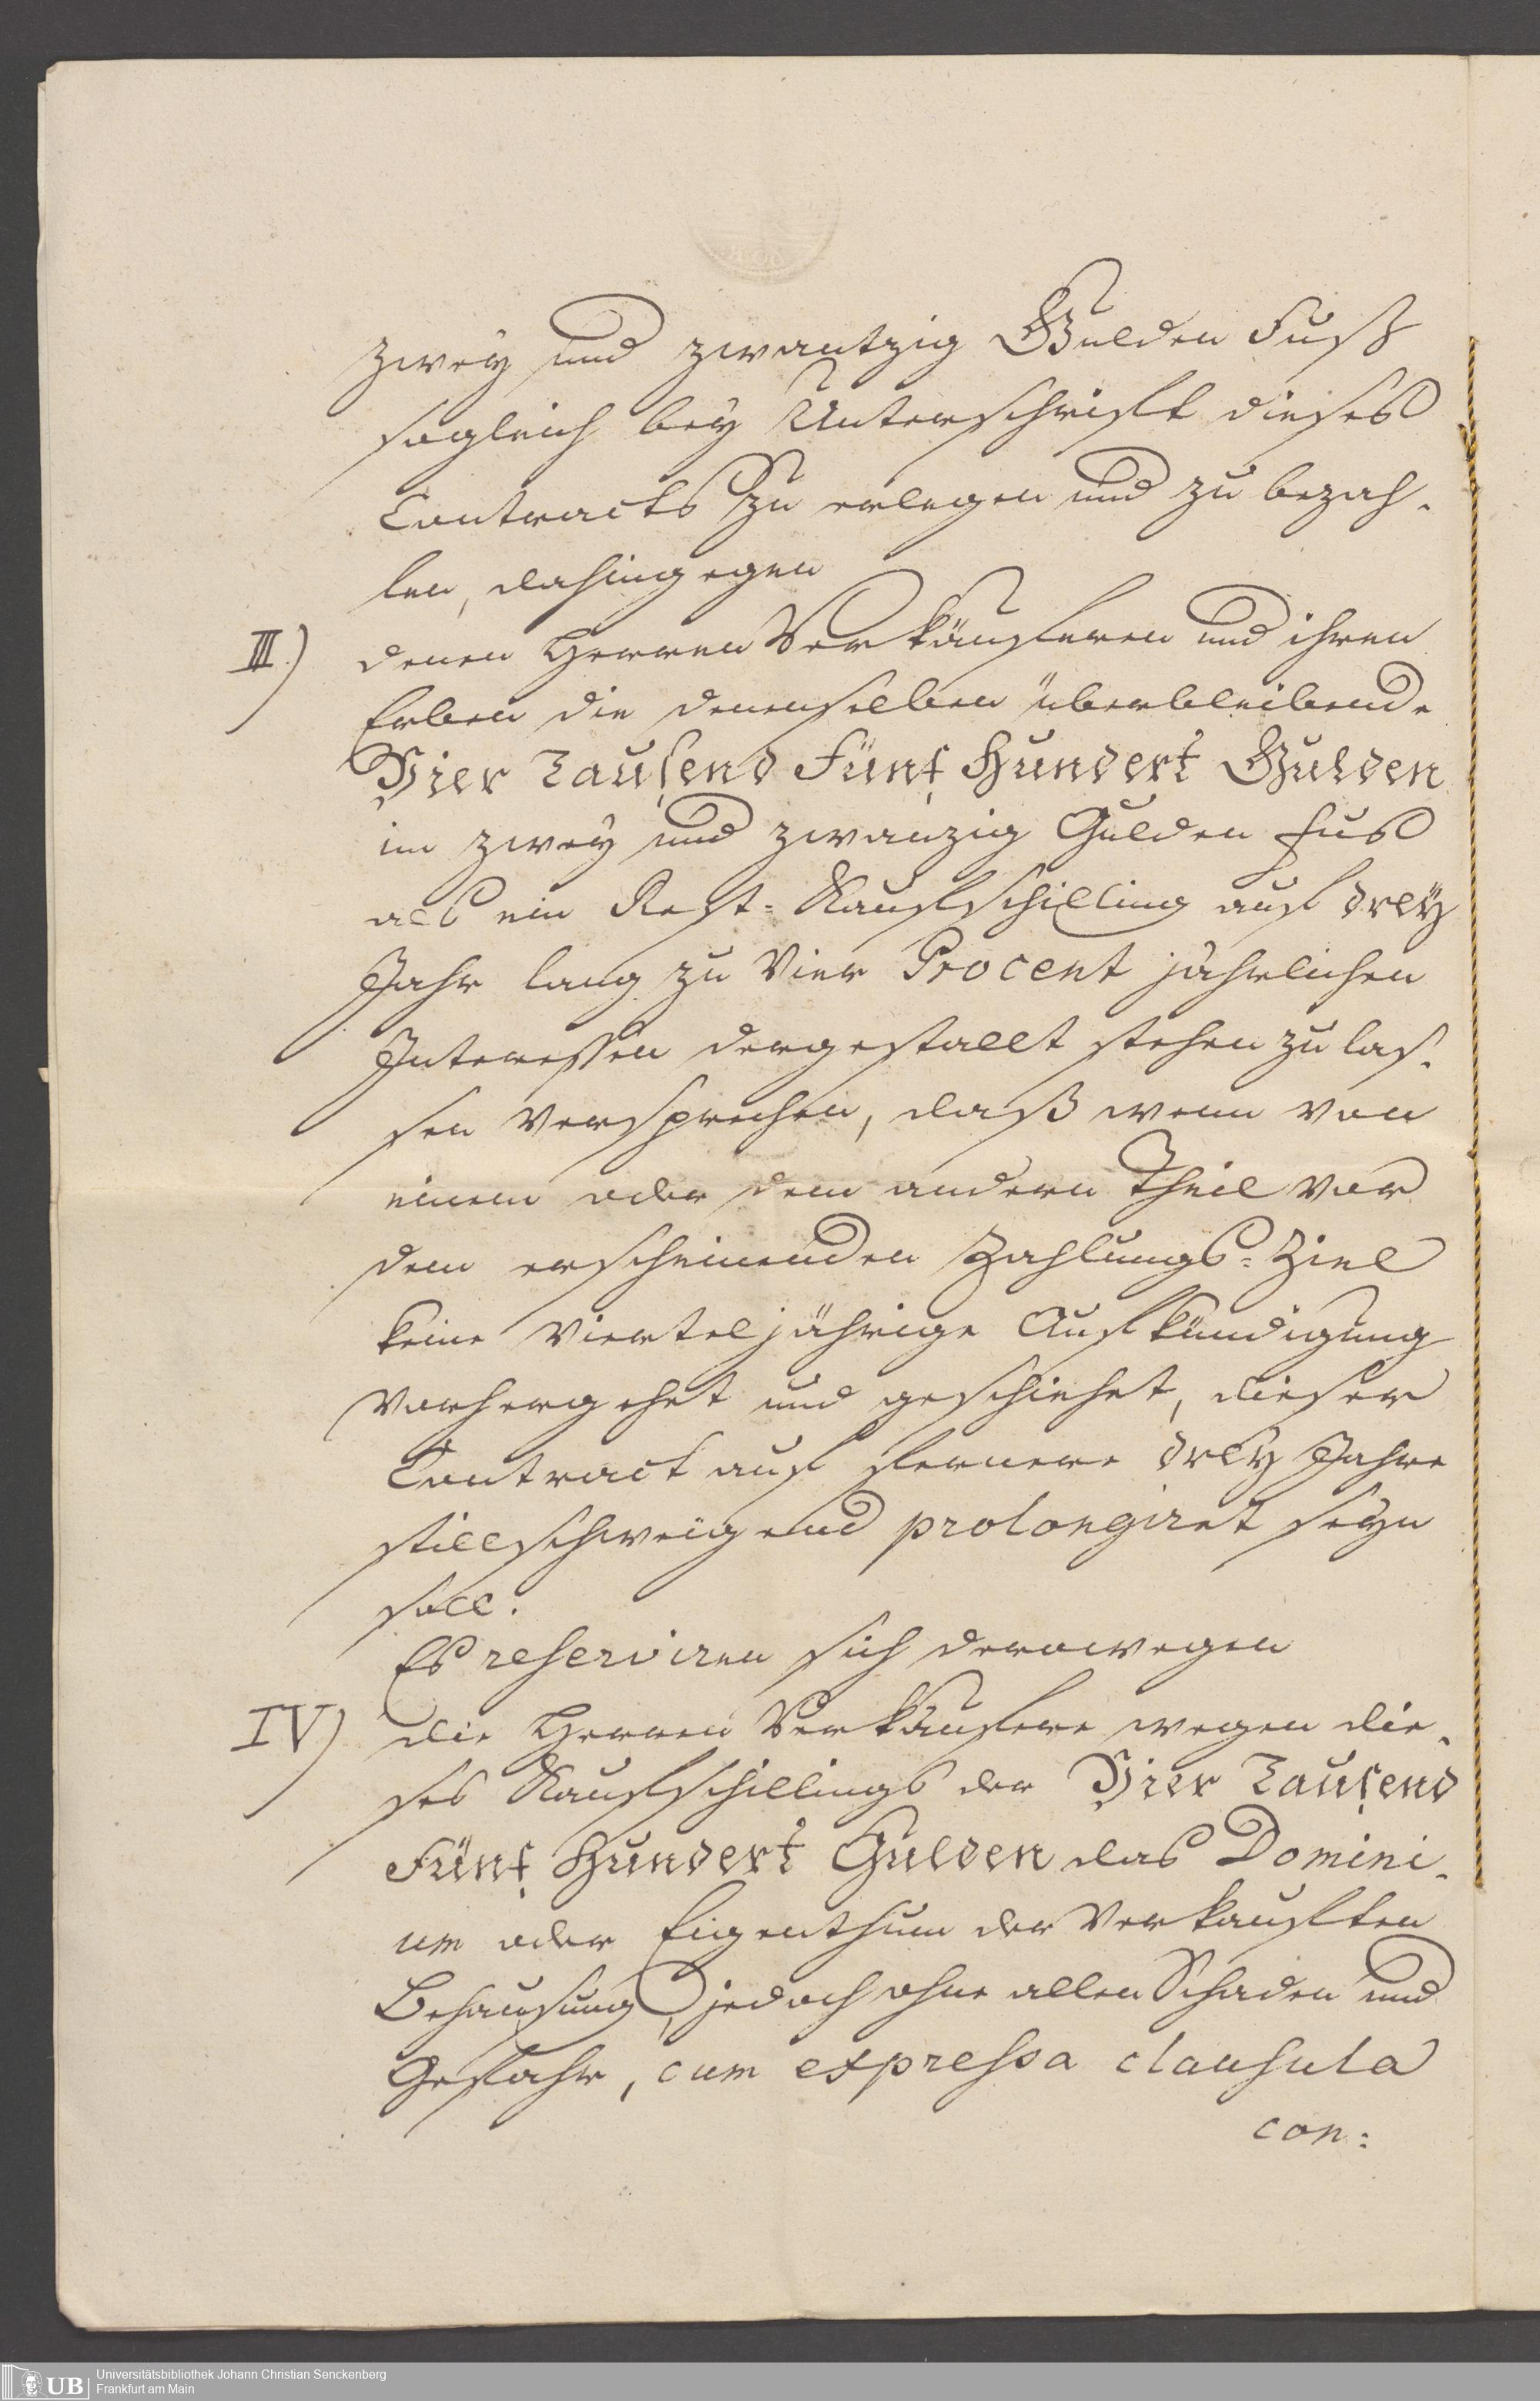 zwey und zwantzig Gulden Fuß
sogleich bey Unterschrifft dieses
Contracts zu erlegen und zu bezah-
len, dahingegen
III.) denen Herren Verkäufferen und ihren
Erben die denenselben überbleibende
Vier Tausend Fünf Hundert Gulden
im zwey und zwanzig Gulden Fus
als ein Rest-Kaufschilling auf drey
Jahr lang zu Vier Procent jährlichen
Interessen dergestallt stehen zu las-
sen versprechen, daß wenn von
einem oder dem andern Theil vor
dem erscheinenden Zahlungs-Ziel
keine vierteljährige Aufkündigung
vorhergehet und geschiehet, dieser
Contract auf fernere drey Jahre
stillschweigend prolongiret seyn
soll.
Es reserviren sich derowegen
IV) die Herren Verkäufere wegen die-
ses Kaufschillings der Vier Tausend
Fünf Hundert Gulden das Domini-
um oder Eigenthum der verkauften
Behausung, jedoch ohne allen Schaden und
Gefahr, cum expressa clausula
con:
UB Universitätsbibliothek Johann Christian Senckenberg
Frankfurt am Main